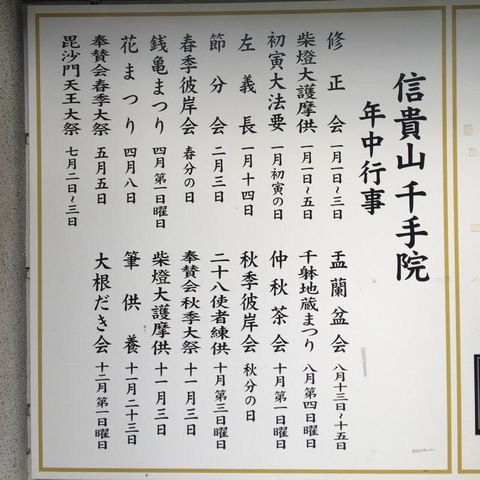 信貴山千手院
年中行事
修正会 一月一日~三日
柴燈大護摩供 一月一日~五日
初寅大法要 一月初寅の日
左義長 一月十四日
節分会 二月三日
春季彼岸会 春分の日
銭亀まつり 四月第一日曜日
花まつり 四月八日
奉賛会春季大祭 五月五日
毘沙門天王大祭 七月二日~三日
盂蘭盆会 八月十三日~十五日
千躰地蔵まつり 八月第四日曜日
仲秋茶会 十月第一日曜日
秋季彼岸会 秋分の日
二十八使者練供 十月第三日曜日
奉賛会秋季大祭 十一月三日
柴燈大護摩供 十一月三日
筆供養 十一月二十三日
大根だき会 十二月第一日曜日